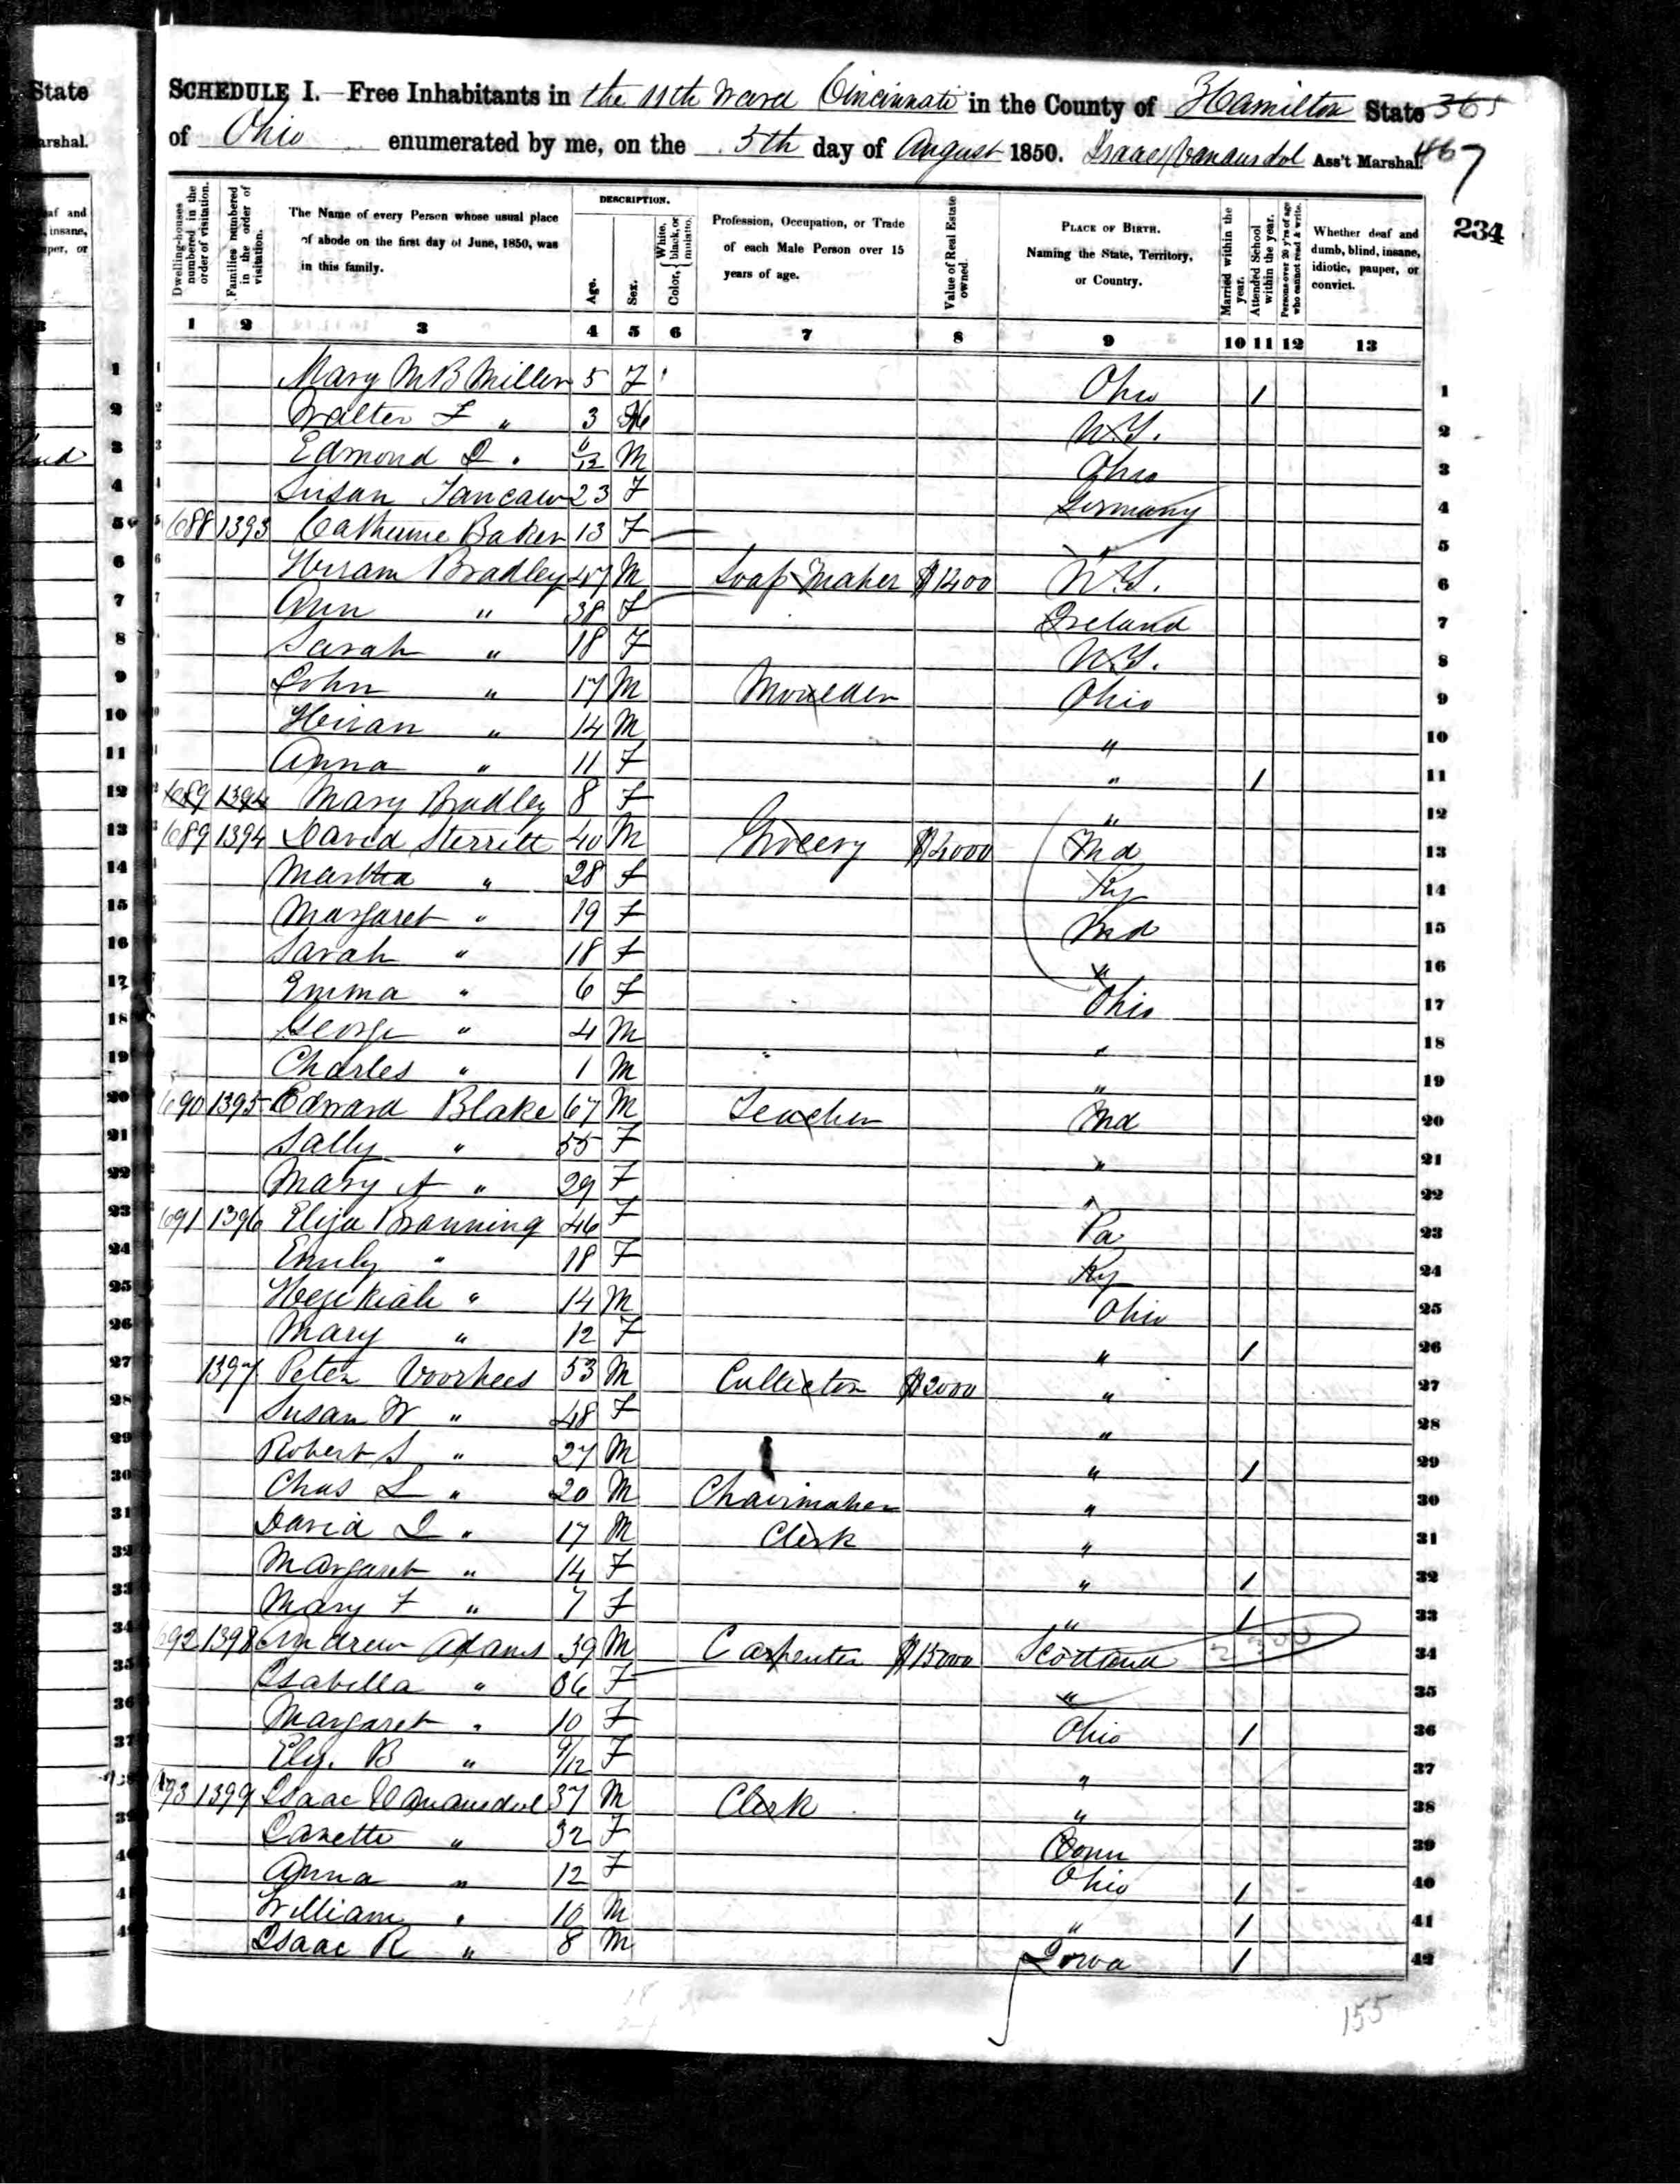 State
SCHEDULE I.—Free Inhabitants in the 11th Ward Cincinnati in the County of Hamilton State 365
arshal.
of Ohio enumerated by me, on the 5th day of August 1850. Isaac Vanausdol Ass't Marshal. 467
234
Dwelling-houses numbered in the order of visitation.
Families numbered in the order of visitation.
The Name of every Person whose usual place of abode on the first day of June, 1850, was in this family.
DESCRIPTION.
Age.
Sex.
Color, White, black, or mulatto.
Profession, Occupation, or Trade of each Male Person over 15 years of age.
Value of Real Estate owned.
PLACE OF BIRTH. Naming the State, Territory, or Country.
Married within the year.
Attended School within the year.
Persons over 20 y'rs of age who cannot read & write.
Whether deaf and dumb, blind, insane, idiotic, pauper, or convict.
1 2 3 4 5 6 7 8 9 10 11 12 13
1 Mary M B Miller 5 F Ohio 1 1
2 Walter F " 3 M N.Y. 2
3 Edmond D " 6/12 M Ohio 3
4 Susan 23 F Germany 4
5 688 1393 Catherine Baker 13 F " 5
6 Hiram Bradley 47 M Soap maker $1400 N.Y. 6
7 Ann " 38 F Ireland 7
8 Sarah " 18 F N.Y. 8
9 John " 17 M Moulder Ohio 9
10 Hiran " 14 M " 10
11 Anna " 11 F " 1 11
12 689 1394 Mary Bradley 8 F " 12
13 689 1394 David Sterritt 40 M Grocery $4000 Md 13
14 Martha " 28 F Ky 14
15 Margaret " 19 F Md 15
16 Sarah " 18 F " 16
17 Emma " 6 F Ohio 17
18 George " 4 M " 18
19 Charles " 1 M " 19
20 690 1395 Edward Blake 67 M Teacher Md 20
21 Sally " 55 F " 21
22 Mary A " 29 F " 22
23 691 1396 Eliza Branning 46 F Pa 23
24 Emily " 18 F Ky 24
25 Hezekiah " 14 M Ohio 25
26 Mary " 12 F " 1 26
27 1397 Peter Voorhees 53 M Collector $2000 " 27
28 Susan W " 48 F " 28
29 Robert S " 27 M " 1 29
30 Chas L " 20 M Chairmaker " 30
31 David D " 17 M Clerk " 31
32 Margaret " 14 F " 1 32
33 Mary F " 7 F " 1 33
34 692 1398 Andrew Adams 39 M Carpenter $15000 Scotland 34
35 Isabella " 36 F " 35
36 Margaret " 10 F Ohio 1 36
37 Eliz. B " 9/12 F " 37
38 693 1399 Isaac Vanausdol 37 M Clerk " 38
39 Lanette " 32 F Conn 39
40 Anna " 12 F Ohio 1 40
41 William " 10 M " 1 41
42 Isaac R " 8 M Iowa 1 42
155